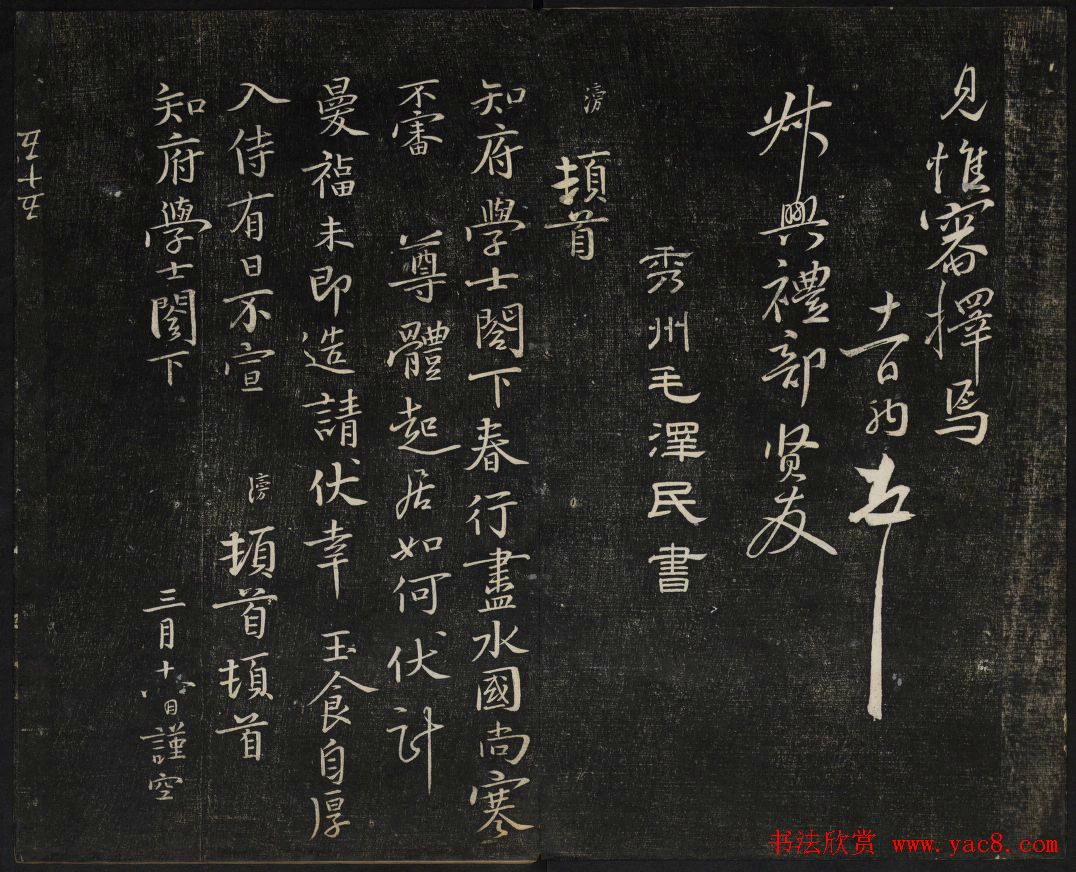 見惟審擇焉
禮部賢友
秀州毛澤民書
滂 頓首
知府學士閤下春行盡水國尚寒
不審 尊體起居如何伏計
曼福未即造請伏幸 玉食自厚
入侍有日不宣 滂 頓首頓首
知府學士閤下 三月十八日謹空
五十五
书法欣赏 www.yac8.com